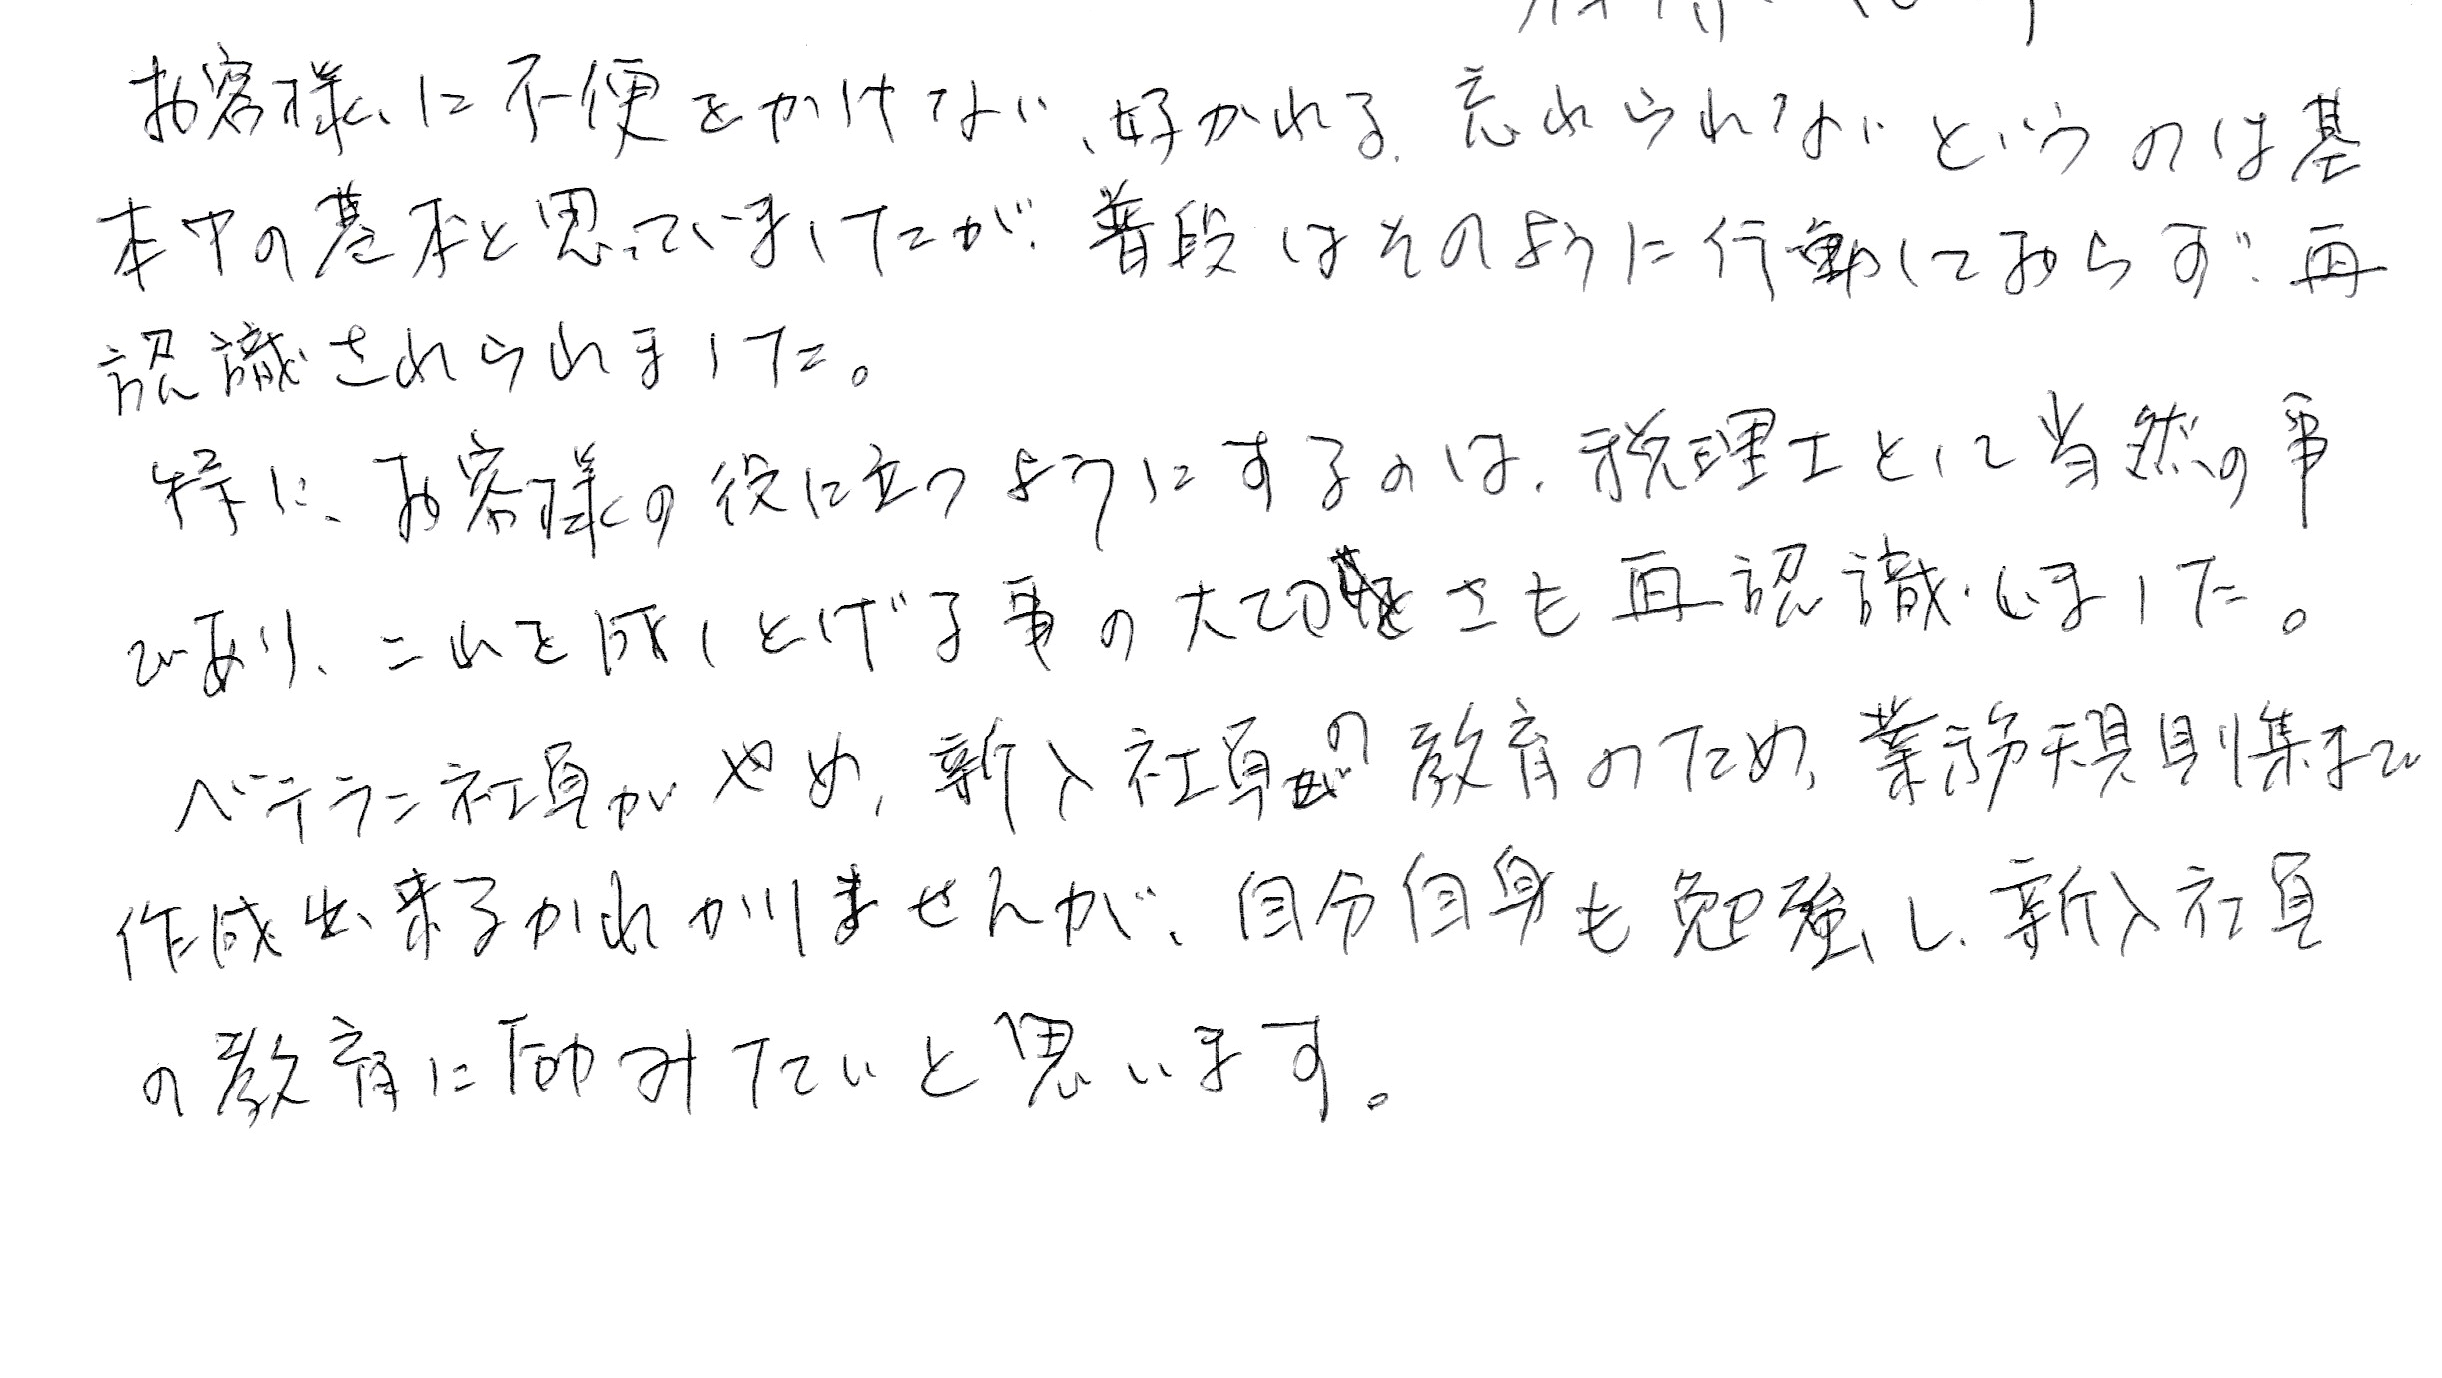 お客様に不便をかけない、好かれる、忘れられないというのは基
本中の基本と思っていましたが、普段はそのように行動しておらず、再
認識されられました。
特に、お客様の役に立つようにするのは、税理士として当然の事
であり、これを成しとげる事の大切さも再認識しました。
ベテラン社員がやめ、新入社員の教育のため、業務規則集まで
作成出来るかわかりませんが、自分自身も勉強し、新入社員
の教育に励みたいと思います。